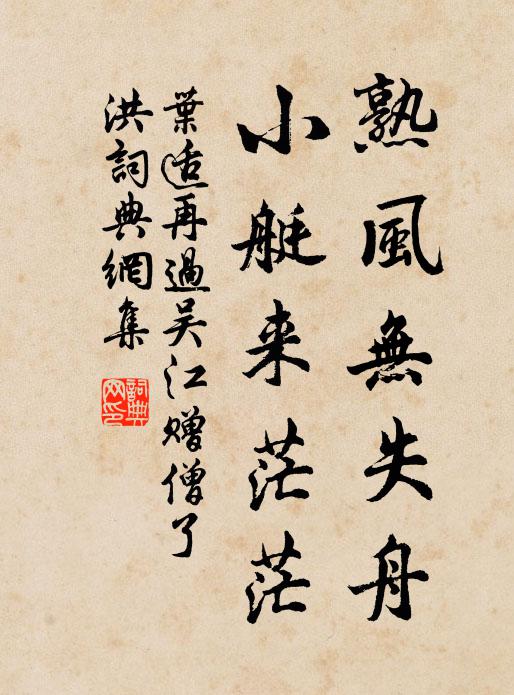 熟風無失舟
小艇来茫茫
葉适再過吴江赠僧了
洪詞典網集
詞典
网印